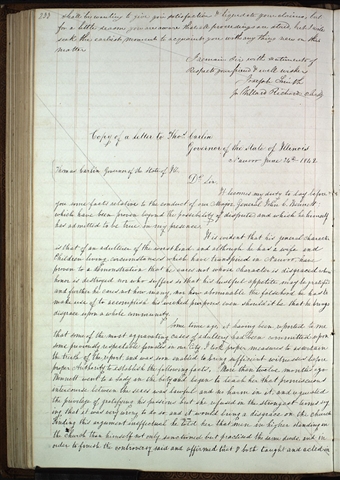 233
shall be wanting to give you satisfaction & liquidate your claims, but
for a little season you are aware that all proceedings are staid, but I will
seek the earliest moment to acquaint you with any thing new on this
matter.
I remain Sir with sentiments of
Respects your friend & well wisher
Joseph Smith
pr Willard Richards, Clerk
Copy of a letter to Thos. Carlin
Governor of the State of Illinois
Nauvoo June 24th 1842.
Thomas Carlin Governor of the State of Ill.
Dr Sir.
It becomes my duty to lay before
you some facts relative to the conduct of our Major General John C. Bennett
which have been proven beyond the possibility of dispute and which he himself
has admitted to be true in my presence.
It is evident that his general character
is that of an adulterer of the worst kind and although he has a wife and
Children living circumstances which have transpired in Nauvoo have
proven to a demonstration that he cares not whose character is disgraced whose
honor is destroyed nor who suffers so that his lustful appetite may be gratified
and further he cares not how many nor how abominable the falsehoods he has to
make use of to accomplish his wicked purposes even should it be that he brings
disgrace upon a whole community.
Some time ago it having been reported to me
that some of the most aggravating cases of adultery had been committed upon
some previously respectable females in our City I took proper measures to ascertain
the truth of the report and was soon enabled to bring sufficient witnesses before
proper Authority to establish the following facts. More than twelve months ago
Bennett went to a lady in the City and began to teach her that promiscuous
intercourse between the sexes was lawful and no harm in it and requested
the privilege of gratifying his passions but she refused in the strongest terms say
ing that it was very wrong to do so and it would bring a disgrace on the Church
Finding this argument ineffectual he told her that men in higher standing in
the Church than himself not only sanctioned but practised the same deeds and in
order to finish the controversy said and affirmed that I both taught and acted in